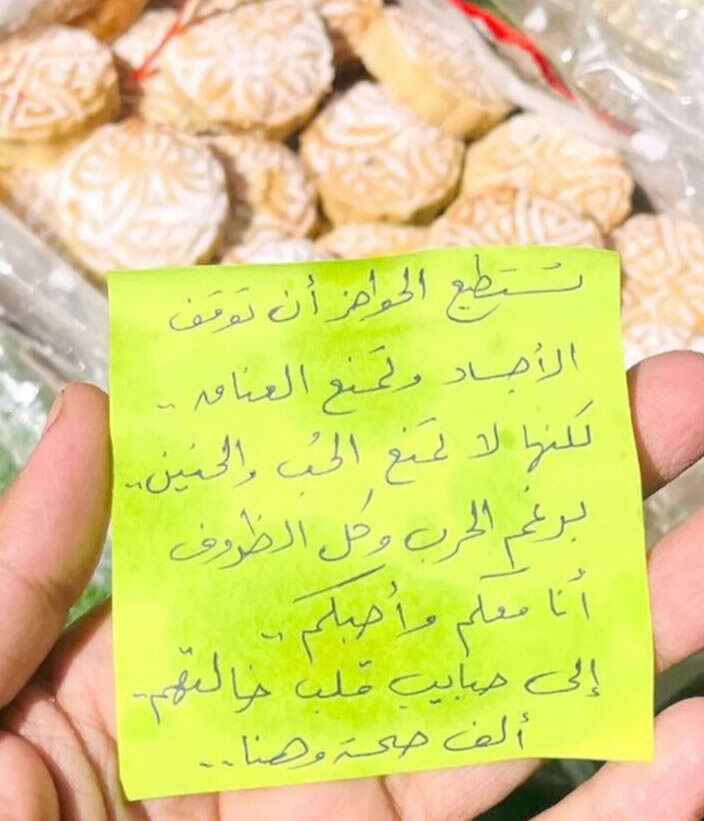 تستطيع الحواجز أن توقف
الأجساد وتمنع العناق ..
لكنها لا تمنع الحُب والحنين..
برغم الحرب وكل الظروف
أنا معكم وأحبكم ..
إلى حبايب قلب خالتهم..
ألف صحة وهنا..